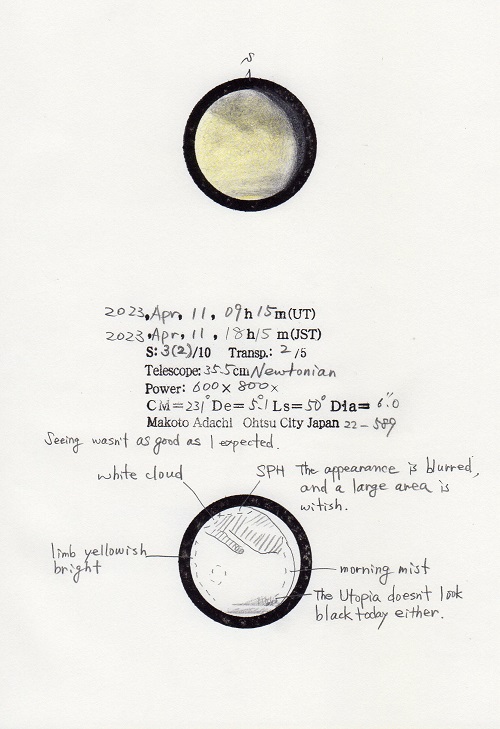 S
2023, Apr, 11, 09h15m(UT)
2023, Apr, 11, 18h15m(JST)
S: 3(2)/10 Transp.: 2/5
Telescope: 35.5cm Newtonian
Power: 600× 800×
CM=231° De=5.°1 Ls=50° Dia=6."0
Makoto Adachi Ohtsu City Japan 22-589
Seeing wasn't as good as I expected.
white cloud
SPH the appearance is blurred,
and a large area is
witish.
limb yellowish
bright
morning mist
The Utopia doesn't look
black today either.